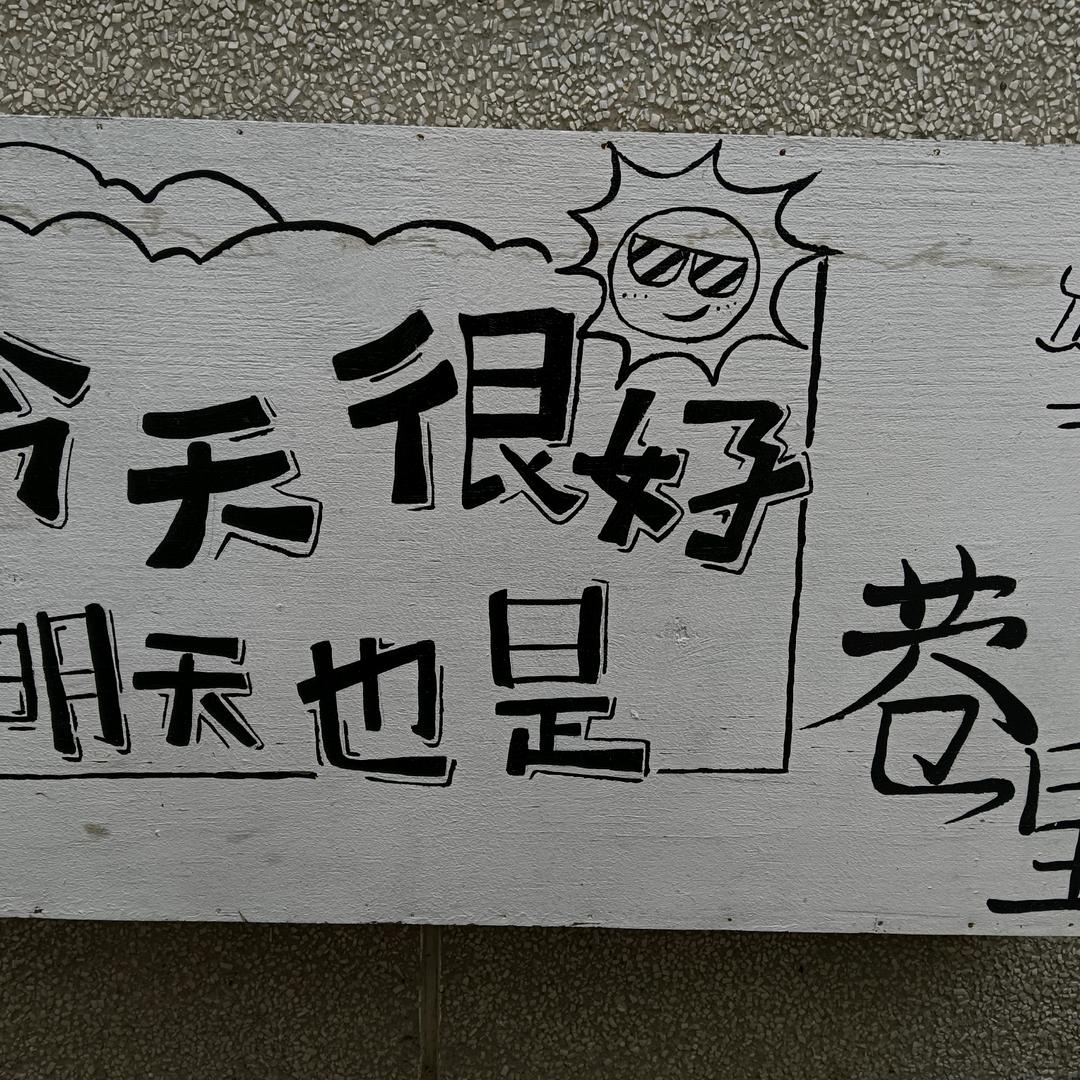 今天很好
明天也是
苍